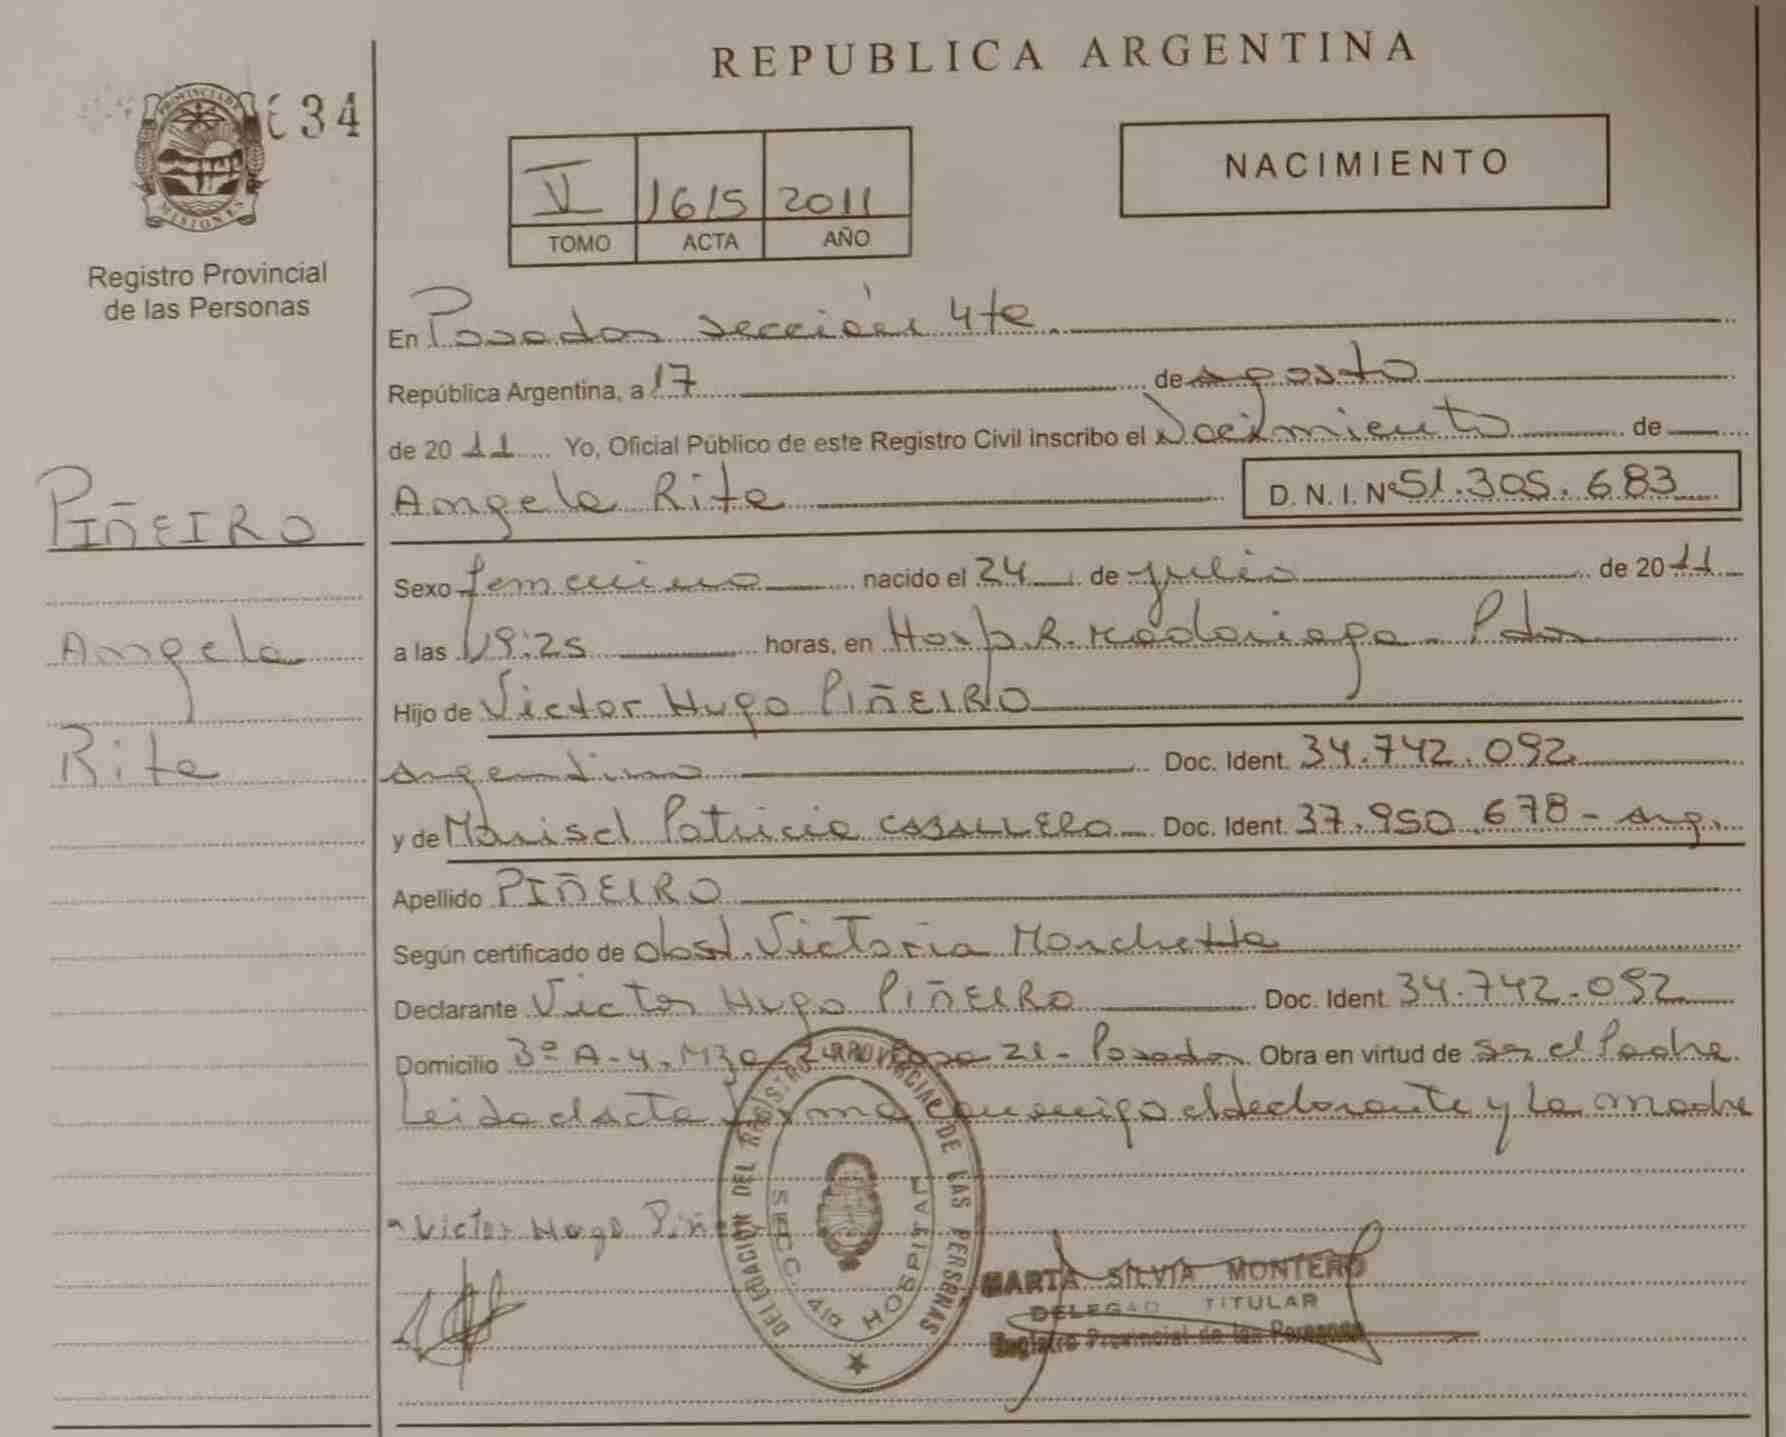 REPUBLICA ARGENTINA
34
PROVINCIA DE
MISIONES
Registro Provincial
de las Personas
V 1615 2011
TOMO ACTA AÑO
NACIMIENTO
En Posadas sección 4ta
República Argentina, a 17 de agosto
de 2011 Yo, Oficial Público de este Registro Civil inscribo el Nacimiento de
Angela Rita D. N. I. Nº 51.305.683
PIÑEIRO
Angela
Rita
Sexo femenino nacido el 24 de julio de 2011
a las 19:25 horas, en Hosp. R. Madariaga - Pdas
Hijo de Victor Hugo PIÑEIRO
argentino Doc. Ident. 34.742.092
y de Marisel Patricia CABALLERO Doc. Ident. 37.950.678 - arg.
Apellido PIÑEIRO
Según certificado de obst. Victoria
Declarante Victor Hugo PIÑEIRO Doc. Ident. 34.742.092
Domicilio 3º A-4, Mza 21 - Posadas Obra en virtud de ser el Padre
Leida el acta firma conmigo el declarante y la madre
Victor Hugo Piñe
DELEGACION DEL REGISTRO PROVINCIAL DE LAS PERSONAS
SECC. 4ta HOSPITAL
MARTA SILVIA MONTERO
DELEGAD TITULAR
Registro Provincial de las Personas